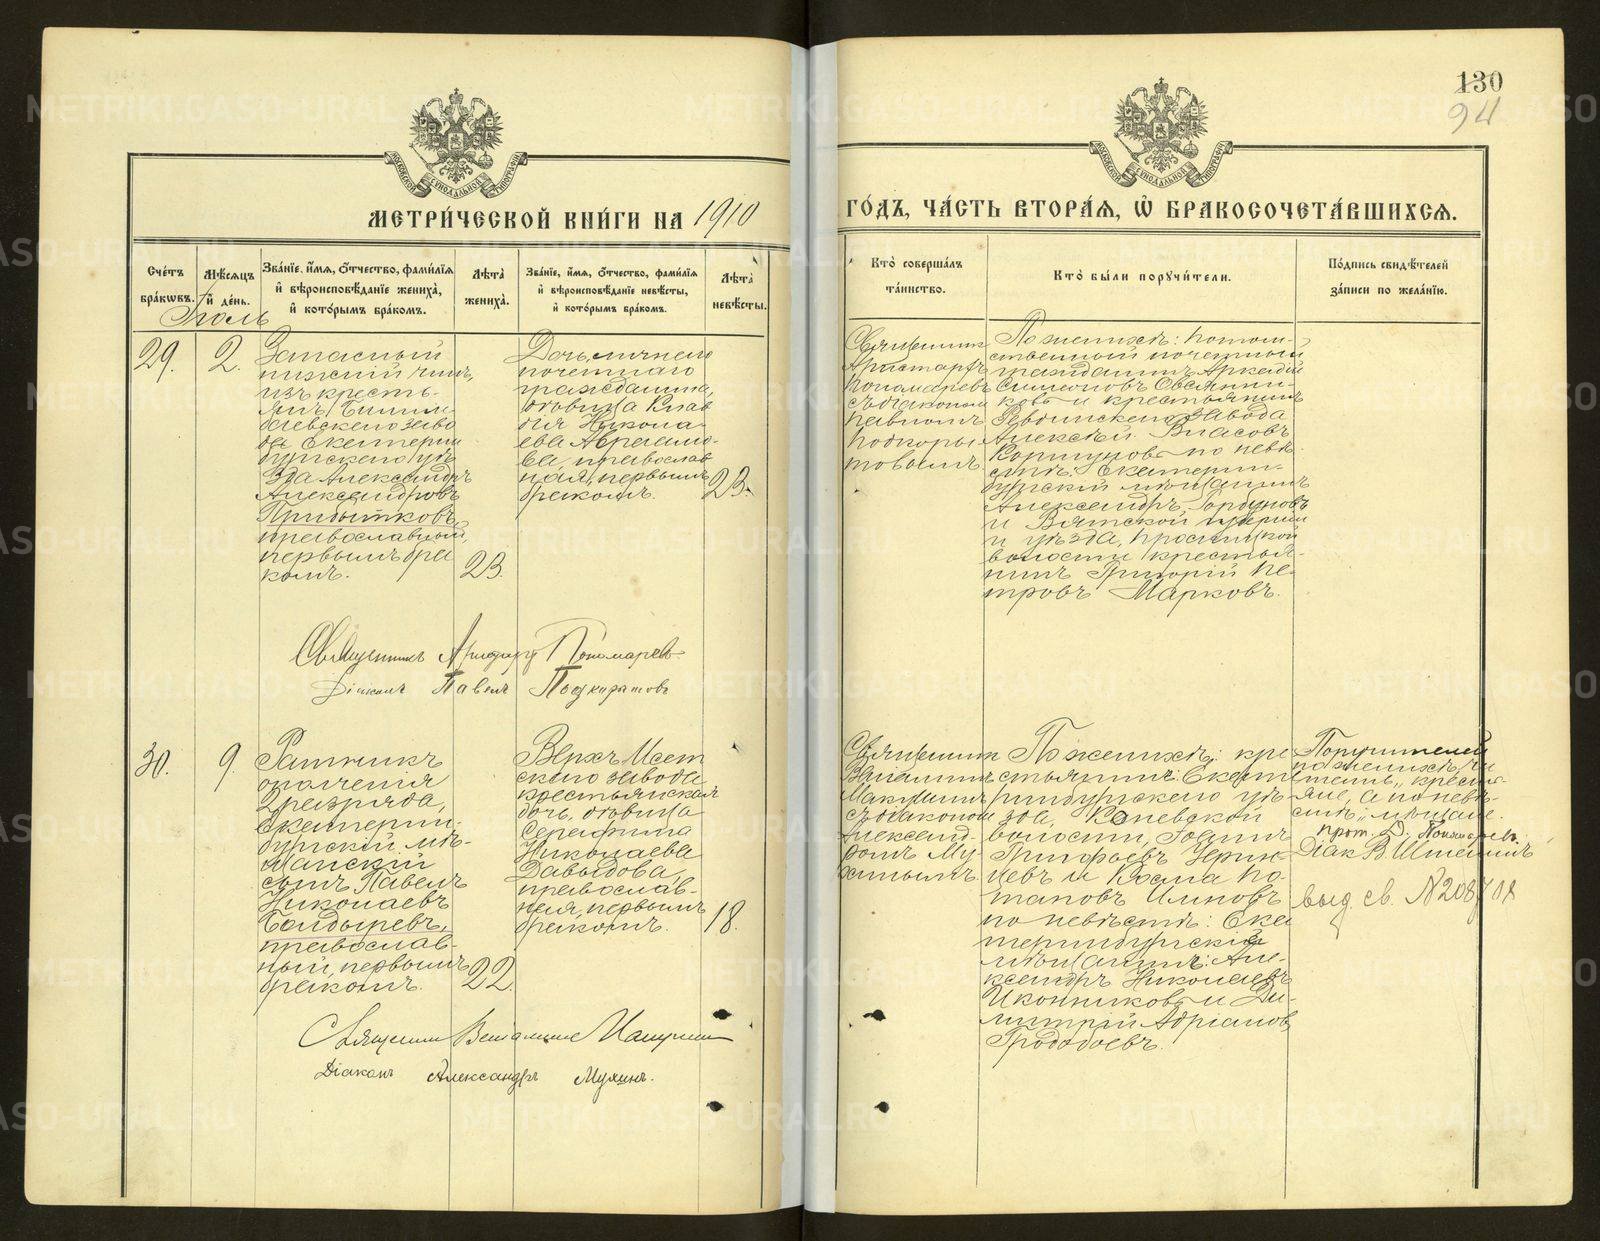 130
94
МЕТРИ́ЧЕСКОЙ КНИ́ГИ НА 1910
ГО́ДЪ, ЧА́СТЬ ВТОРА́Я, Ѽ БРАКОСОЧЕТА́ВШИХСЯ.
Сче́тъ
бра́кѡвъ.
Мѣ́сяцъ
и҆ де́нь.
Зва́нїе, и҆́мя, ѻ҆́тчество, фами́лїя
и҆ вѣроисповѣ́данїе жениха̀,
и҆ кото́рымъ бра́комъ.
Лѣ́та
жениха̀.
Зва́нїе, и҆́мя, ѻ҆́тчество, фами́лїя
и҆ вѣроисповѣ́данїе невѣ́сты,
и҆ кото́рымъ бра́комъ.
Лѣ́та
невѣ́сты.
Кто̀ соверша́лъ
та́инство.
Кто̀ бы́ли пору́чи́тели.
По́дпись свидѣ́телей
за́писи по жела́нїю.
Іюль
29.
2.
Запасный
нижній чинъ,
изъ кресть-
янъ Билим-
баевскаго заво
да Екатерин
бургскаго уѣ
зда Александръ
Александровъ
Прибытковъ,
православный,
первымъ бра
комъ.
23.
Дочь личнаго
почетнаго
гражданина,
дѣвица Клав
дія Никола-
ева Аврамо-
ва, православ
ная, первымъ
бракомъ.
23.
Священникъ
Аристархъ
Пономаревъ
съ діакономъ
Павломъ
Подкоры
товымъ.
По женихѣ: потом-
ственный почетный
гражданинъ Аркадій
Симеоновъ Овсянни-
ковъ и крестьянинъ
Ревдинскаго завода
Алексѣй Власовъ
Коршуновъ по невѣ-
стѣ: Екатерин-
бургскій мѣщанинъ
Александръ Горбуновъ
и Вятской губерніи
и уѣзда,
волости крестья-
нинъ Григорій Пе-
тровъ Марковъ.
Священникъ Аристархъ Пономаревъ
Діаконъ Павелъ Подкорытовъ
30.
9.
Ратникъ
ополченія
2 разряда,
Екатерин-
бургскій мѣ-
щанскій
сынъ Павелъ
Николаевъ
Балдыревъ,
православ-
ный, первымъ
бракомъ.
22.
Верхъ Исет
скаго завода
крестьянская
дочь, дѣвица
Серафима
Николаева
Давыдова,
православ-
ная, первымъ
бракомъ.
18.
Священникъ
Веніаминъ
Макушинъ
съ діакономъ
Александ-
ромъ Му-
хинымъ.
По женихѣ: кре
стьянинъ Екате
ринбургскаго уѣ-
зда,
волости,
Григорьевъ
и Косма По-
таповъ
по невѣстѣ: Ека
теринбургскіе
мѣщанинъ: Але-
ксандръ Николаевъ
Иконниковъ и Ди-
митрій Адріановъ
Гродобоевъ.
Поручителей
по женихѣ чи
тать „крестья-
не, а по невѣ-
стѣ „мѣщане.
прот. Д. Пономаревъ.
Діак. В.
выд. св. №
Священникъ Веніаминъ Макушинъ
Діаконъ Александръ Мухинъ.